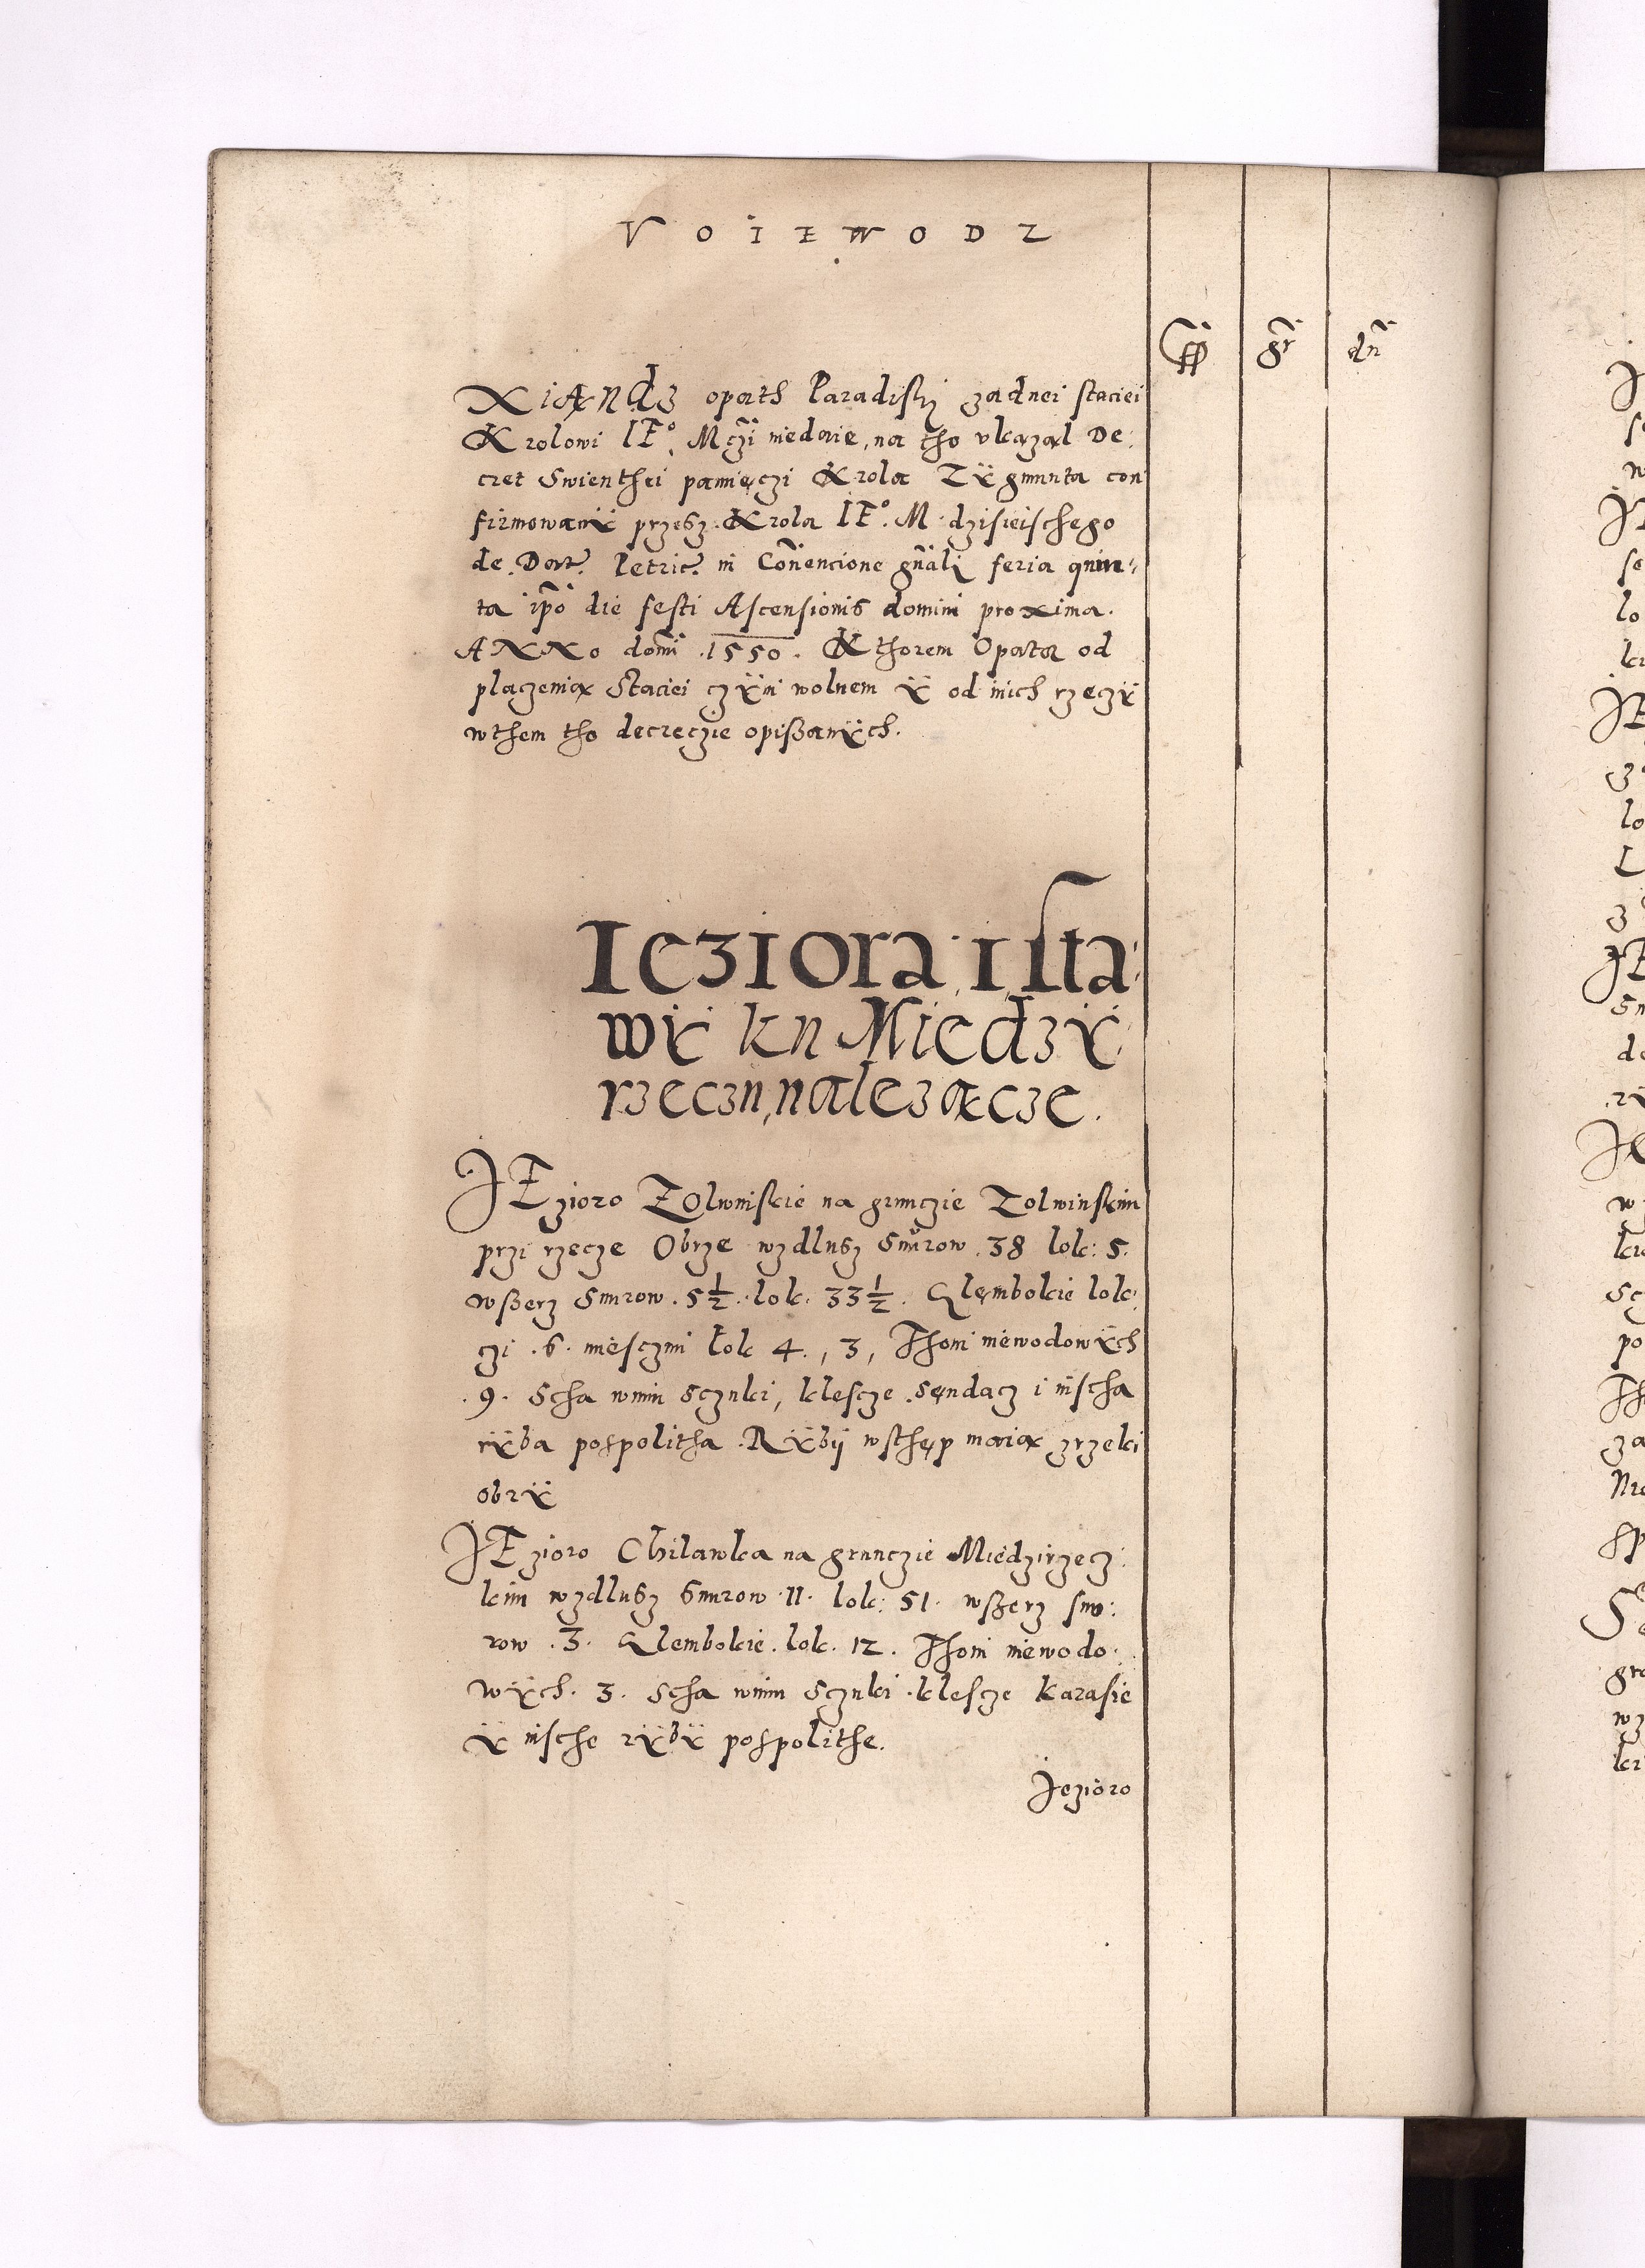 VOIEWODZ
ff gr dn
XiĄNdz opath Paradiski zadnei staciei
Krolowi IE° Mczi niedaie, na tho vkazal De:
cret Swienthei pamięczi Krola Zÿgmunta con
firmowanÿ przesz Krola IE°. M. dzisieischego
de Dat. Petric. in Conencione gnali feria quin-
ta ipo die festi Ascensionis domini proxima.
ANNo domi .1550. Kthorem Opata od
placzenia Staciei czÿni wolnem ÿ od inich rzeczÿ
wthem tho decreczie opißanÿch.
Ieziora i sta:
wÿ ku Miedzÿ:
rzeczu, nalezącze.
JEzioro ZOlwniskie na grunczie Zolwinskim
przi rzecze Obrze wzdlusz Snurow 38 lok: 5.
wßerz Snurow. 5½. lok. 33½. Glęmbokie lok:
czi .6. miesczmi lok 4., 3, Thoni niewodowÿch
.9. Scha wnim sczuki, klescze sędacz i inscha
rÿba pospolitha. Rÿbij wsthęp maią zrzeki
obrÿ
JEzioro Chilawka na grunczie Miedzirzecz:
kim wzdlusz Snurow 11. lok: 51. wßerz snu:
row .3. Glembokie. lok. 12. Thoni niewodo:
wÿch. 3. Scha wnim Sczuki klescze karasie
ÿ insche rÿbÿ pospolithe.
Jezioro